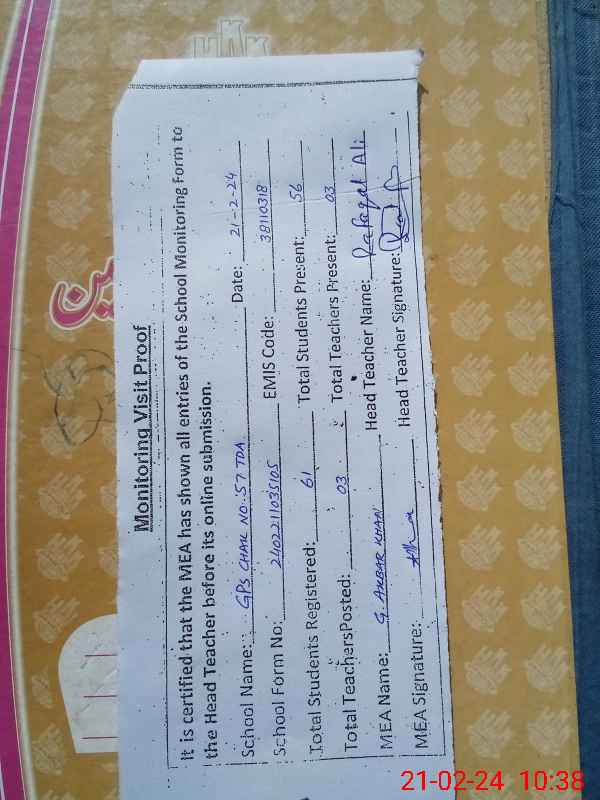 Monitoring Visit Proof
It is certified that the MEA has shown all entries of the School Monitoring Form to
the Head Teacher before its online submission.
School Name: GPS CHAK NO. 57 TDA Date: 21-2-24
School Form No: 2402211035105 EMIS Code: 38110318
Total Students Registered: 61 Total Students Present: 56
Total TeachersPosted: 03 Total Teachers Present: 03
MEA Name: G. AKBAR KHAN Head Teacher Name: Rafaqat Ali
MEA Signature: Head Teacher Signature:
21-02-24 10:38